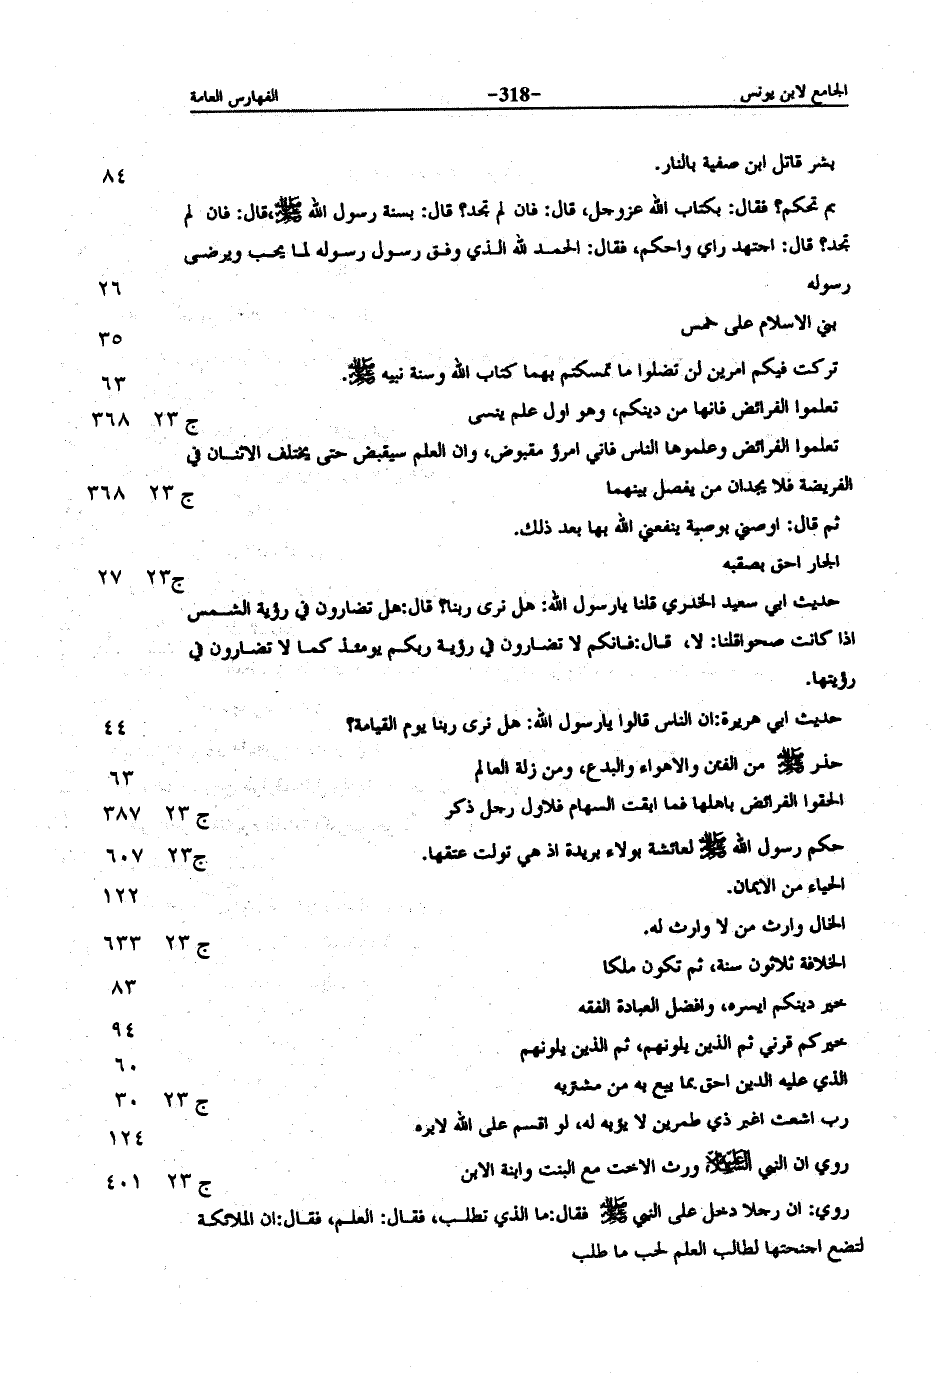 الجامع لابن يونس -318- الفهارس العامة
بشر قاتل ابن صفية بالنار. ٨٤
بم تحكم؟ فقال: بكتاب الله عزوجل، قال: فان لم تجد؟ قال: بسنة رسول الله ﷺ،قال: فان لم
تجد؟ قال: اجتهد راي واحكم، فقال: الحمد لله الذي وفق رسول رسوله لما يحب ويرضى
رسوله ٢٦
بني الاسلام على خمس ٣٥
تركت فيكم امرين لن تضلوا ما تمسكتم بهما كتاب الله وسنة نبيه ﷺ. ٦٣
تعلموا الفرائض فانها من دينكم، وهو اول علم ينسى ج ٢٣ ٣٦٨
تعلموا الفرائض وعلموها الناس فاني امرؤ مقبوض، وان العلم سيقبض حتى يختلف الاثنان في
الفريضة فلا يجدان من يفصل بينهما ج ٢٣ ٣٦٨
ثم قال: اوصني بوصية ينفعني الله بها بعد ذلك.
الجار احق بصقبه ج٢٣ ٢٧
حديث ابي سعيد الخدري قلنا يارسول الله: هل نرى ربنا؟ قال:هل تضارون في رؤية الشمس
اذا كانت صحواقلنا: لا، قال:فانكم لا تضارون في رؤية ربكم يومئذ كما لا تضارون في
رؤيتها.
حديث ابي هريرة:ان الناس قالوا يارسول الله: هل نرى ربنا يوم القيامة؟ ٤٤
حذر ﷺ من الفتن والاهواء والبدع، ومن زلة العالم ٦٣
الحقوا الفرائض باهلها فما ابقت السهام فلاول رجل ذكر ج ٢٣ ٣٨٧
حكم رسول الله ﷺ لعائشة بولاء بريدة اذ هي تولت عتقها. ج٢٣ ٦٠٧
الحياء من الايمان. ١٢٢
الخال وارث من لا وارث له. ج ٢٣ ٦٣٣
الخلافة ثلاثون سنة، ثم تكون ملكا ٨٣
خير دينكم ايسره، وافضل العبادة الفقه ٩٤
خيركم قرني ثم الذين يلونهم، ثم الذين يلونهم ٦٠
الذي عليه الدين احق بما بيع به من مشتريه ج ٢٣ ٣٠
رب اشعث اغبر ذي طمرين لا يؤبه له، لو اقسم على الله لابره ١٢٤
روي ان النبي العَلَيْهِ السَّلام ورث الاخت مع البنت وابنة الابن ج ٢٣ ٤٠١
روي: ان رجلا دخل على النبي ﷺ فقال:ما الذي تطلب، فقال: العلم، فقال:ان الملائكة
لتضع اجنحتها لطالب العلم لحب ما طلب